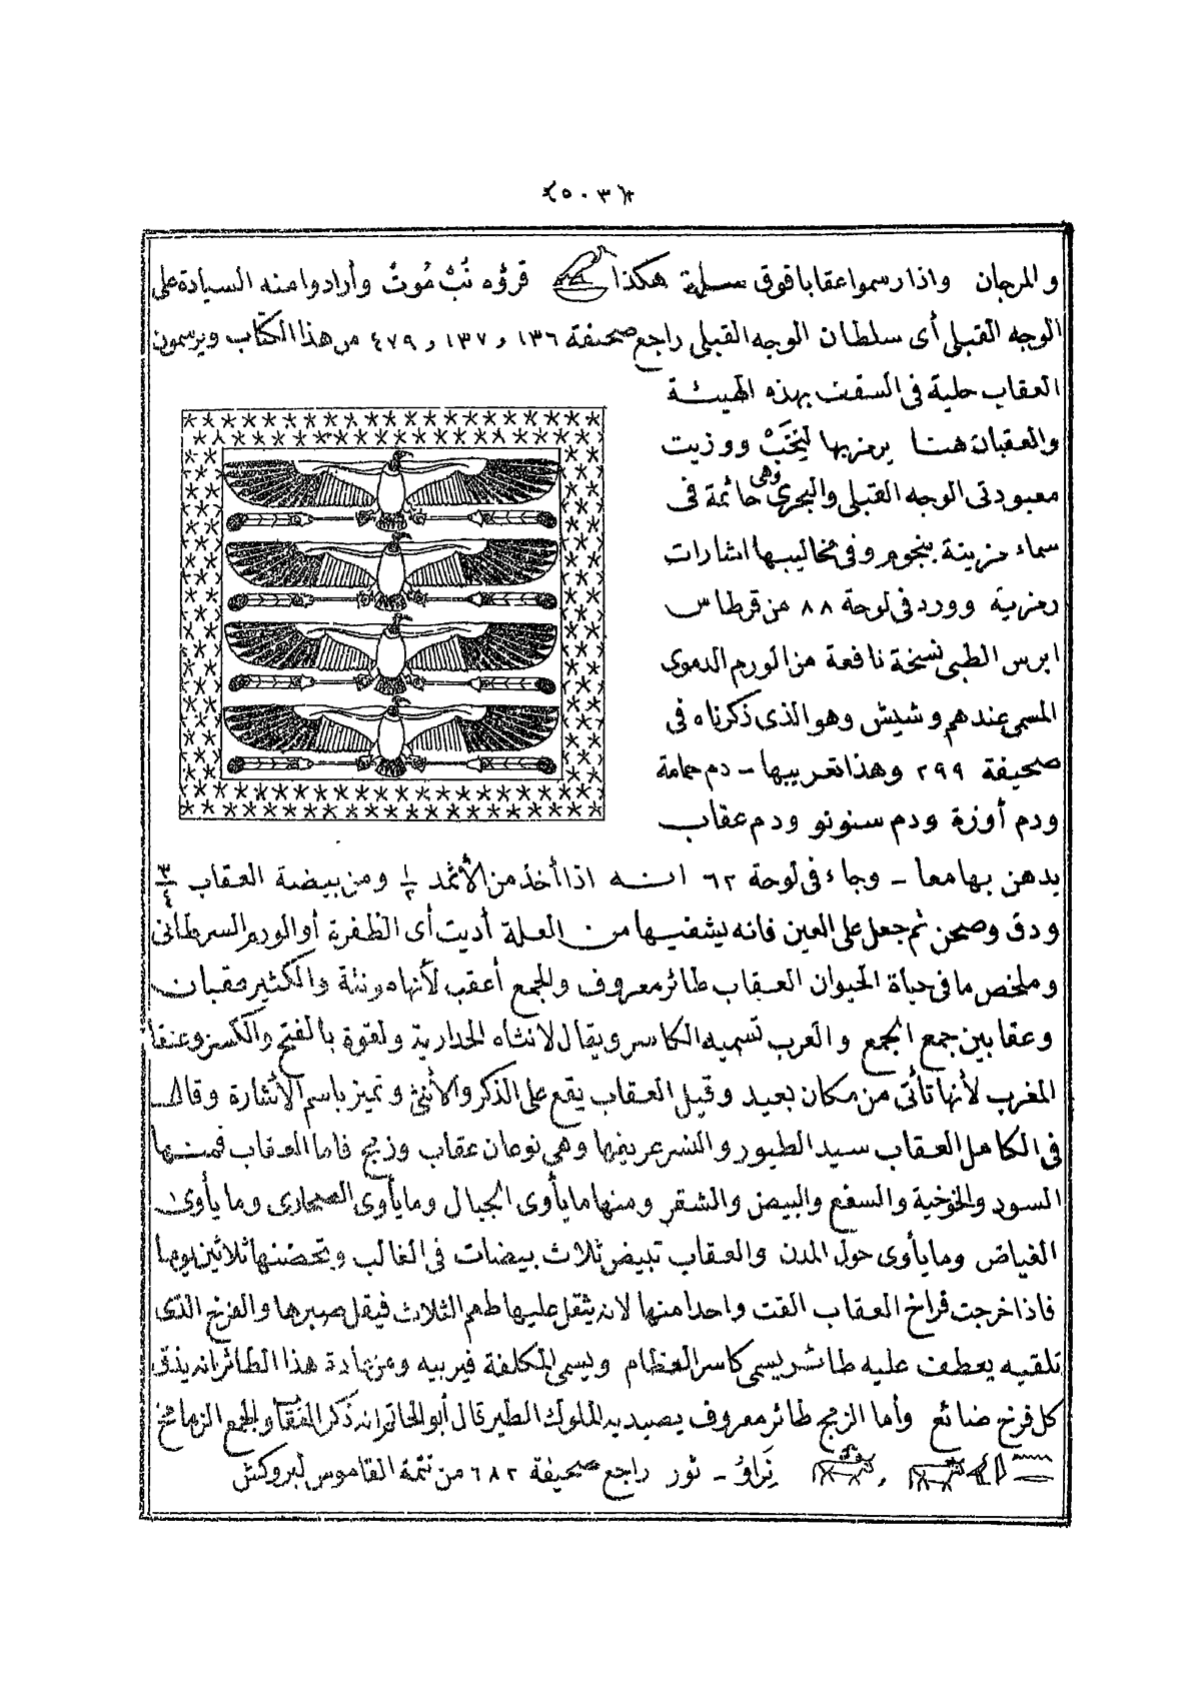 ﴿٥٠٣﴾
والمرجان واذا رسموا عقابا فوق سلة هكذا قرؤه نُبْ مُوتْ وأرادوا منه السيادة على
الوجه القبلى أى سلطان الوجه القبلى راجع صحيفة ١٣٦ و ١٣٧ و ٤٧٩ من هذا الكتاب ويرسمون
العقاب حلية فى السقف بهذه الهيئة
والعقبان هنا يرمز بها لنخب ووزيت
معبودتى الوجه القبلى والبحرى وهى حائمة فى
سماء مزينة بنجوم وفى مخاليبها اشارات
رمزية وورد فى لوحة ٨٨ من قرطاس
ابرس الطبى نسخة نافعة من الورم الدموى
المسمى عندهم وشيش وهو الذى ذكرناه فى
صحيفة ٢٩٩ وهذا تعريبها – دم حمامة
ودم أوزة ودم سنونو ودم عقاب
يدهن بها معا – وجاء فى لوحة ٦٢ انه اذا أخذ من الأثمد ١/٢ ومن بيضة العقاب ٣/٤
ودق وصحن ثم جعل على العين فانه يشفيها من العلة أديت أى الظفرة أو الورم السرطانى
وملخص ما فى حياة الحيوان العقاب طائر معروف والجمع أعقب لأنها مونثة والكثير عقبان
وعقابين جمع الجمع والعرب تسميه الكاسر ويقال لانثاه الخدارية ولقوة بالفتح والكسر وعنقا
المغرب لأنها تأتى من مكان بعيد وقيل العقاب يقع على الذكر والأنثى وتميز باسم الأشارة وقال
فى الكامل العقاب سيد الطيور والنسر عريفها وهى نوعان عقاب وزمج فاما العقاب فمنها
السود والخوخية والسفع والبيض والشقر ومنها ما يأوى الجبال وما يأوى الصحارى وما يأوى
الغياض وما يأوى حول المدن والعقاب تبيض ثلاث بيضات فى الغالب وتحضنها ثلاثين يوما
فاذا خرجت فراخ العقاب القت واحدا منها لانه يثقل عليها طعم الثلاث فيقل صبرها والفرخ الذى
تلقيه يعطف عليه طائر يسمى كاسر العظام ويسمى المكلفة فيربيه ومن عادة هذا الطائر انه يذق
كل فرخ ضائع وأما الزمج طائر معروف يصيد به الملوك الطير قال أبو الحاتم انه ذكر والجمع الزمامج
نَراوُ – ثور راجع صحيفة ٦٨٢ من تتمة القاموس لبروكش